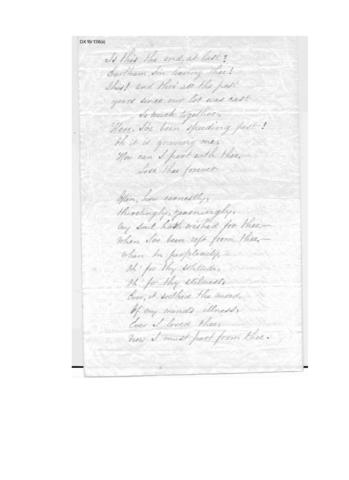 DX 19/138(a)
Is this the end, at last?
I'm leaving thee!
This! and thro' all the past
years since our lot was cast
So much together,
Here, I've been spending fast!
Oh it is grieving me,
How can I part with thee,
Lose thee forever
Often, how earnestly,
thirstingly, yearningly,
my soul hath wished for thee—
when I've been reft from thee,—
when in perplexity,
Oh! for thy
Oh! for thy stillness,
Ever, it soothed the
Of my mind's illness,
Ever I loved thee,
Now I must part from thee.